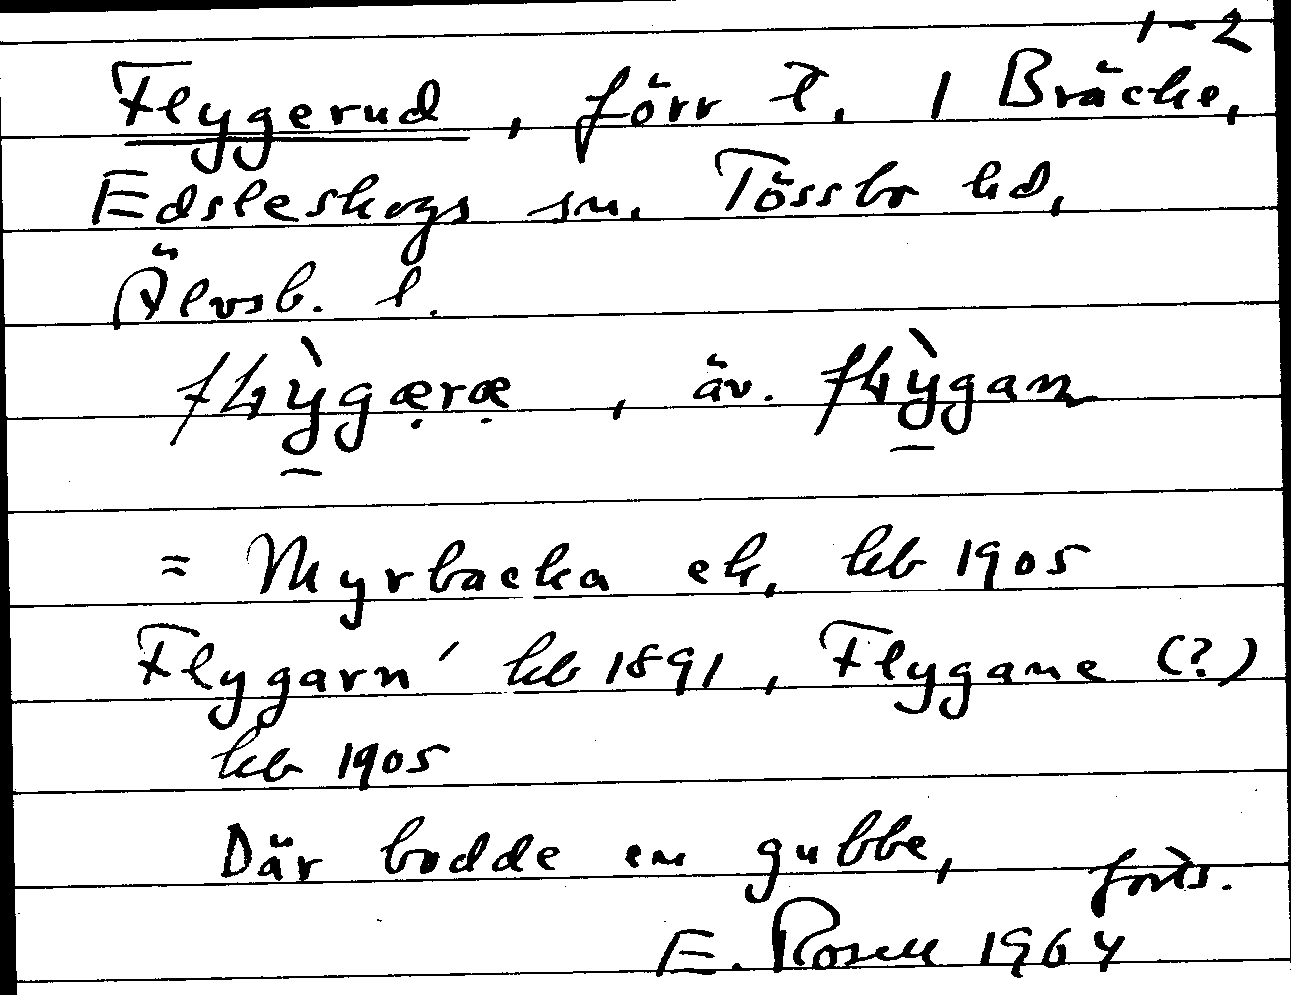 1-2
Flygerud, förr t. 1 Bräcke,
Edsleskogs sn. Tössbo hd,
Älvsb. l.
flỳgæ̣ræ̣, äv. flỳgan
= Myrbacka ek, kb 1905
Flygarn' kb 1891, Flygane (?)
kb 1905
Där bodde en gubbe, forts.
E. Rosell 1964